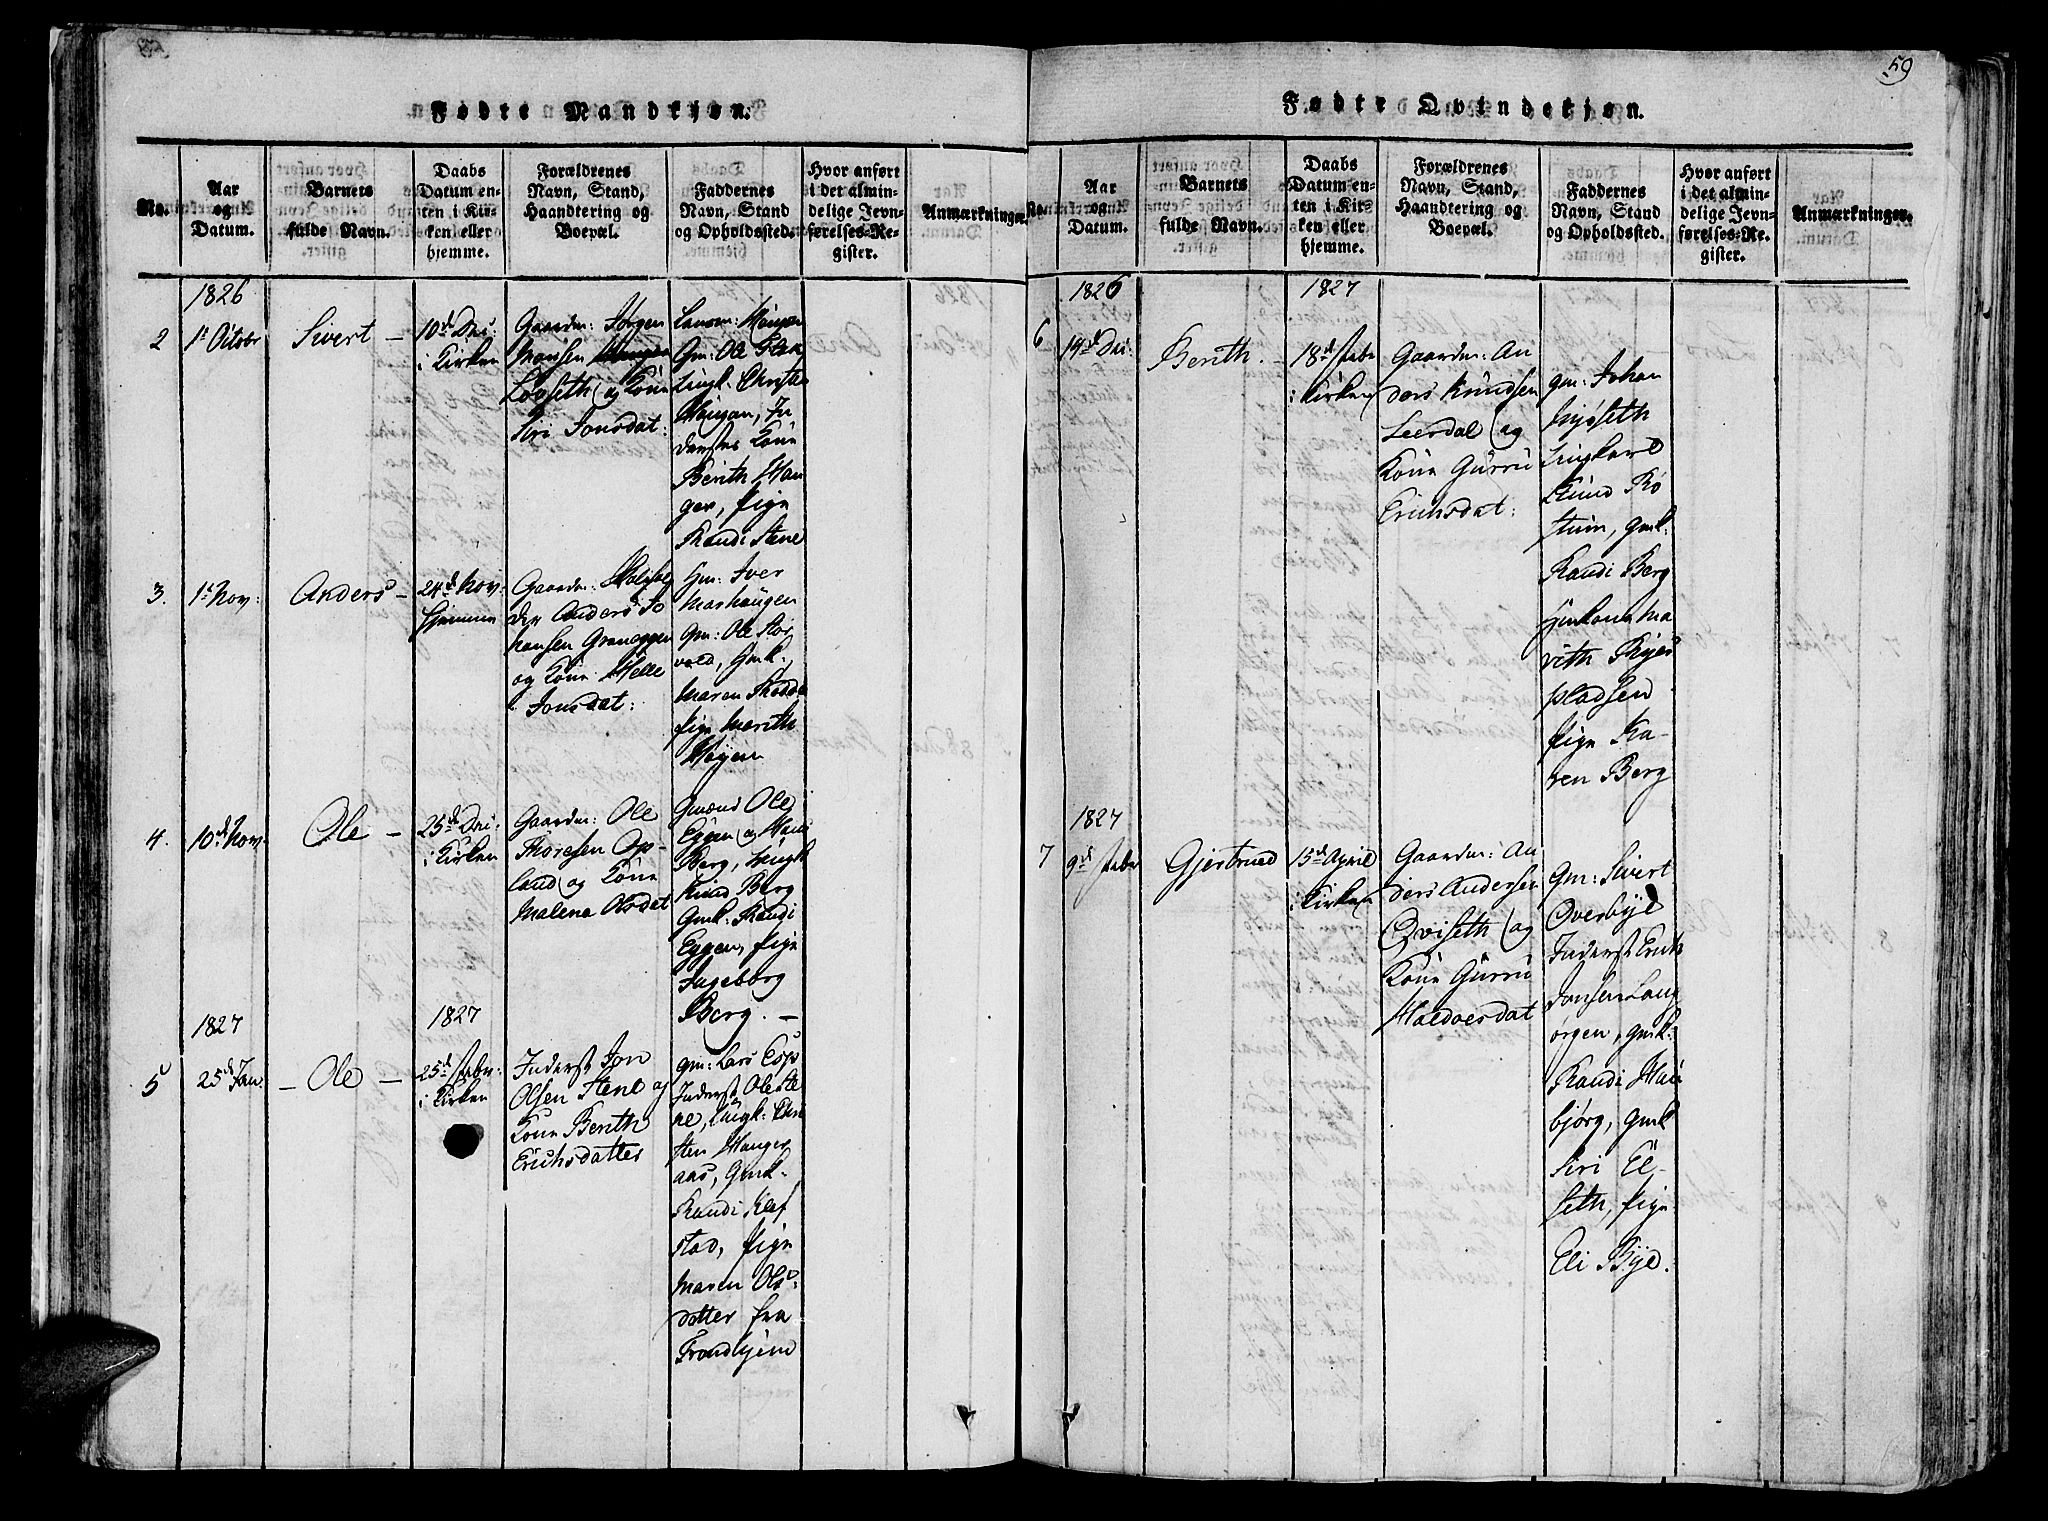 59
Fødte Mandkjøn.
No.
Aar
og
Datum.
Barnets
fulde Navn.
Daabs
Datum en-
ten i Kir-
ken eller
hjemme.
Forældrenes
Navn, Stand,
Haandtering og
Boepæl.
Faddernes
Navn, Stand
og Opholdssted.
Hvor anført
i det almin-
delige Jevn-
førelses-Re-
gister.
Anmærkninger.
1826
2
1ste Octobr
Sivert —
10de Dec:
i Kirken
Gaardm: Jørgen
Hansen
Løvseth og Kone
Siri Jonsdat:
Gm: Ole
Ungk: Christen
Haugan, In
derstes Kone
Berith Hau
ger, Pige
Randi Stene
3.
1ste Nov:
Anders —
24de Nov:
Hjemme
Gaardm:
Anders Jo
hansen Granoggen
og Kone
Jonsdat:
Gm: Iver
Marhaugen
Gm: Ole Stor
vold, Gmk.
Maren
Pige Marith
Høgen
4.
10de Nov.
Ole —
25de Dec:
i Kirken
Gaardm: Ole
Thoresen Op-
land og Kone
Malena Olsdat
Gmænd Ole
Eggen og Hans
Berg, Ungk
Knud Berg
Gmk: Randi
Eggen, Pige
Ingeborg
Berg. —
1827
1827
5
25de Jan.
— Ole —
25de Febr:
i Kirken
Inderst Jon
Olsen Stene og
Kone Berith
Erichsdatter
gm: Lars Esp
Inderst Ole Ste
ne, Ungk: Chri
sten Hanger
aas, Gmk.
Randi Klef
stad, Pige
Maren Ols-
datter fra
Trondhjem
Fødte Qvindekjøn.
No.
Aar
og
Datum.
Barnets
fulde Navn.
Daabs
Datum en-
ten i Kir-
ken eller
hjemme.
Forældrenes
Navn, Stand,
Haandtering og
Boepæl.
Faddernes
Navn, Stand
og Opholdssted.
Hvor anført
i det almin-
delige Jevn-
førelses-Re-
gister.
Anmærkninger.
1826
1827
6
19de Dec:
Berith. —
18de Febr
i Kirken
Gaardm: An
ders Knudsen
Leerdal og
Kone Gurru
Erichsdat:
gm: Johan
Ungkarl
Knud Rø
stum, gmk.
Randi Berg
Gmkone Ma
rith Byes
pladsen
Pige Ka-
ren Berg
1827
7
9de Febr
Gjertrued
15de April
i Kirken
Gaardm: An
ders Andersen
Qviseth og
Kone Gurru
Haldoesdat
gm: Sivert
Overbye
Inderst Erich
Jonsen Lang
ørgen, gmk.
Randi Hau
bjørg, gmk
Siri El-
seth, Pige
Eli Bye.